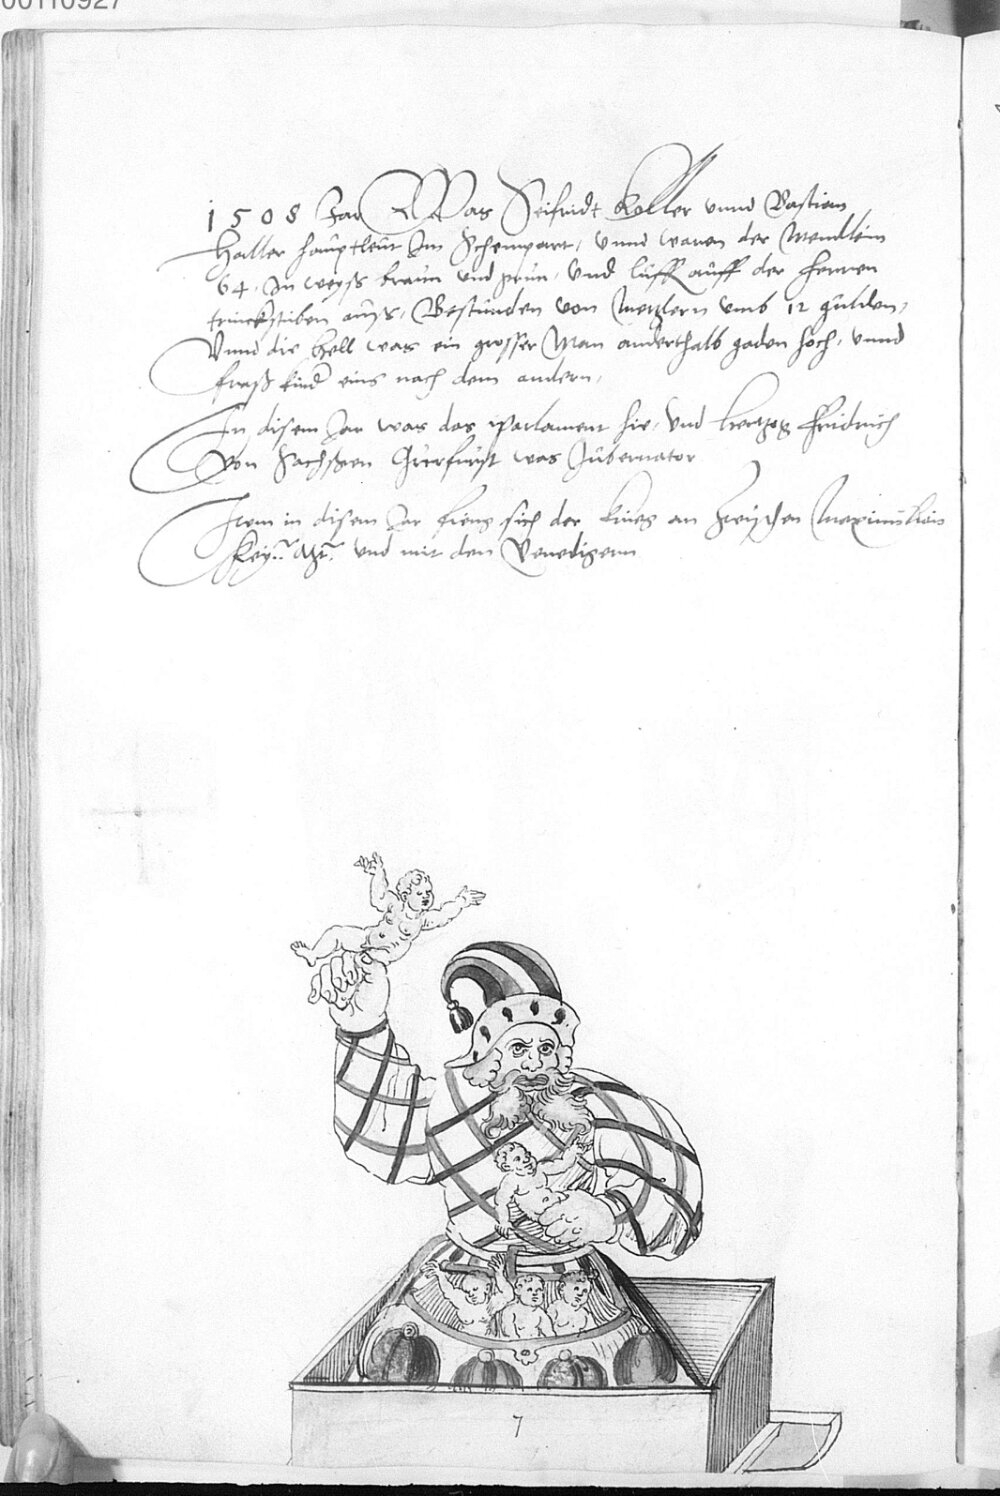 00110927
1508 Jar Was Seifridt Koller vnnd Bastian
Haller haüptleüt Im Schempart, vnnd waren der Mendlein
64, In weyß braun vnd grün, vnd lüff auff der herren
trinckstüben auß, Bestünden von Metzlern vmb 12 gülden,
Vnnd die hell was ein grosser Man anderthalb gaden hoch, vnnd
fraß kind eins nach dem andern,
In disem Jar was das parlament hie, vnd hertzog Fridrich
Von Sachssen Churfürst was Gubernator
Item in disem Jar fieng sich der krieg an zwischen Maximilian
Key: Mt: vnd mit den Venedigern
7